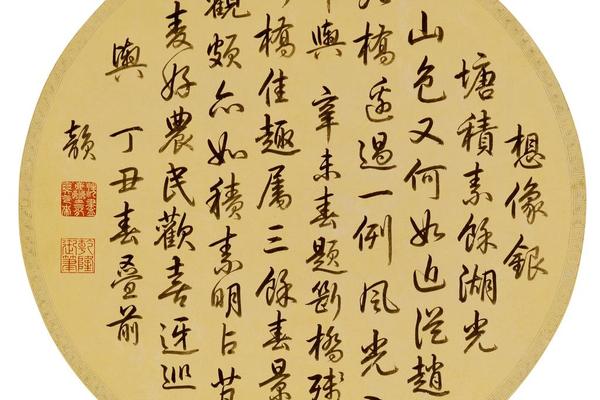 想像銀
塘積素餘湖光
山色又何如近從趙
橋邊過一例風光
輿 辛未春題斷橋殘
橋佳趣屬三餘春景
觀頗亦如積素明占
麥好農民歡喜迓巡
輿 丁丑春疊前
韻
乾隆
御筆